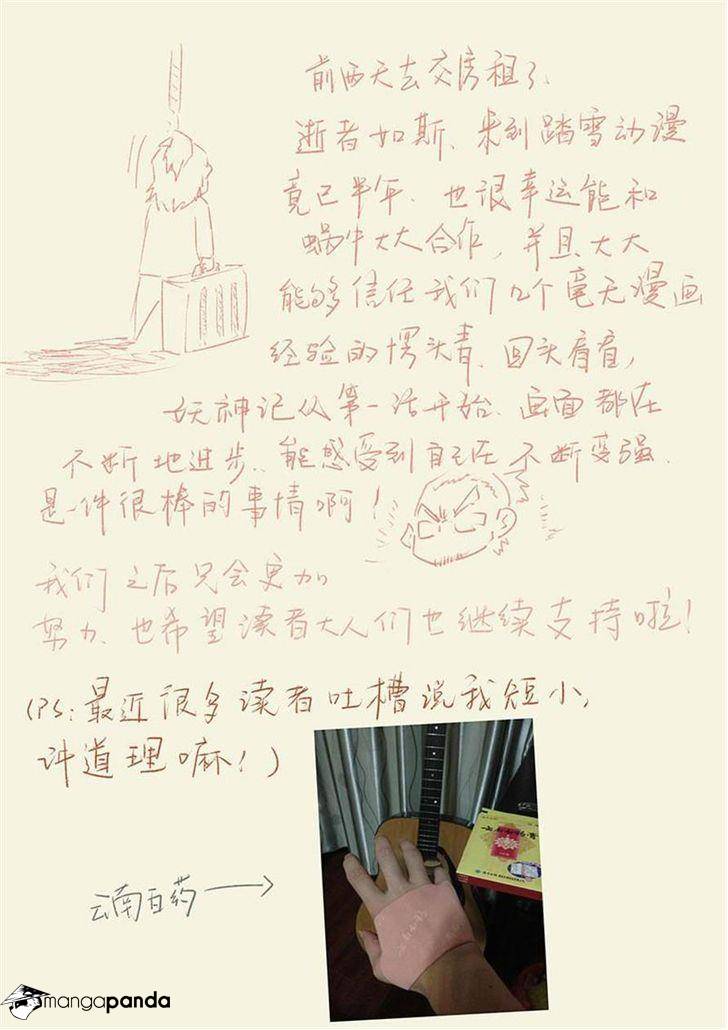 前两天去交房租了、
逝者如斯、来到踏雪动漫
竟已半年、也很幸运能和
蜗牛大大合作，并且大大
能够信任我们几个毫无漫画
经验的愣头青、回头看看，
妖神记从第一话开始、画面都在
不断地进步、能感受到自己在不断变强、
是一件很棒的事情啊！
我们之后只会更加
努力、也希望读者大人们也继续支持啦！
(PS：最近很多读者吐槽说我短小，
讲道理嘛！)
云南白药→
云南白药膏
mangapanda